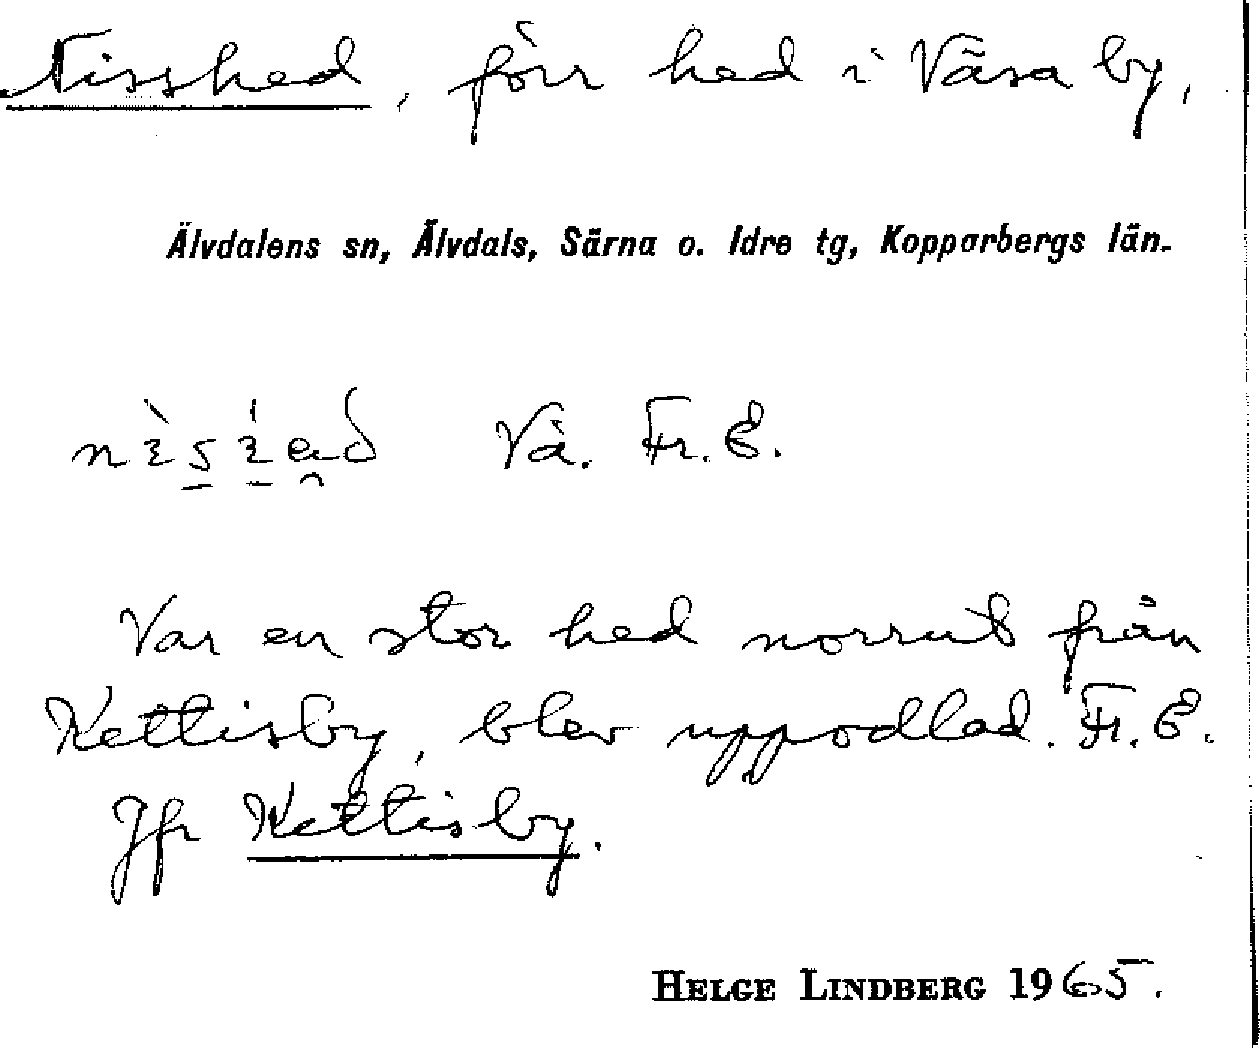 Nisshed, förr hed i Våsa by,
Älvdalens sn, Älvdals, Särna o. Idre tg, Kopparbergs län.
Vå. Fr. E.
Var en stor hed norrut från
Kettisby, blev uppodlad. Fr. E.
Jfr Kettisby.
HELGE LINDBERG 1965.